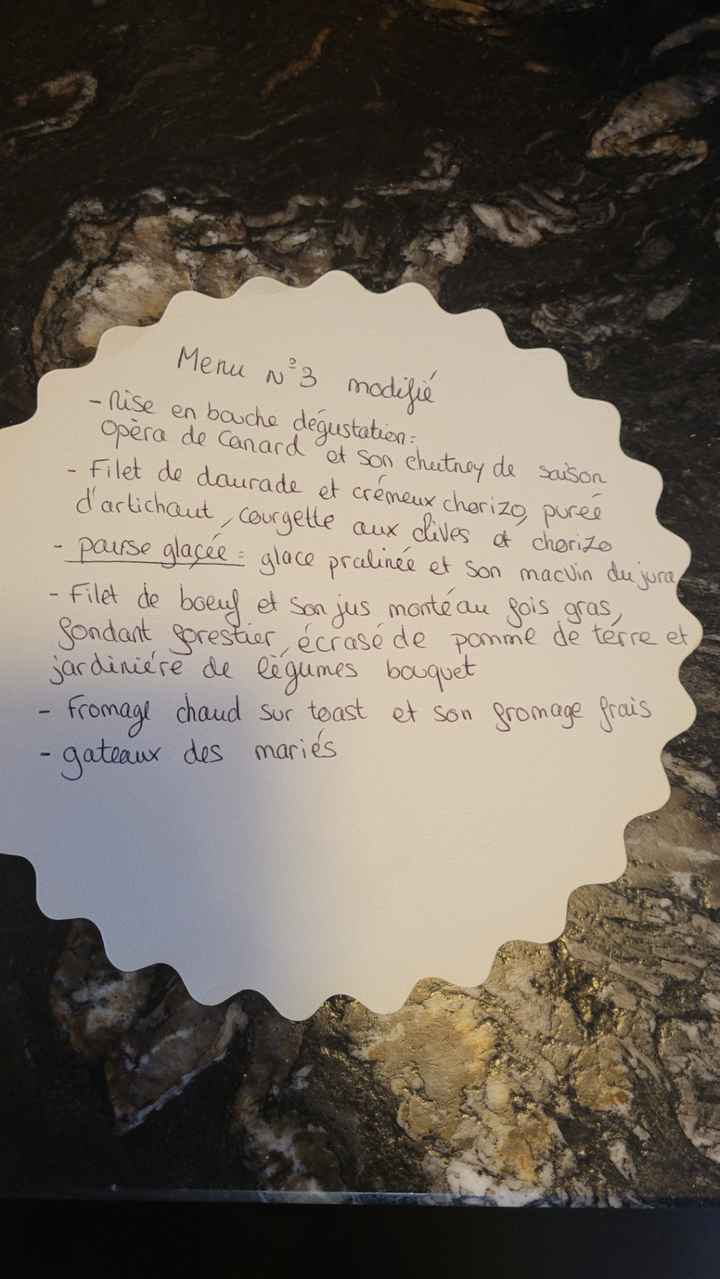 Menu N°3 modifié
- Mise en bouche dégustation:
opéra de canard et son chutney de saison
- Filet de daurade et crémeux chorizo, pureé
d'artichaut, courgette aux olives et chorizo
- pause glaçée : glace pralinée et son macvin du jura
- Filet de boeuf et son jus monté au fois gras,
fondant forestier, écrasé de pomme de térre et
jardiniére de légumes bouquet
- Fromage chaud sur toast et son fromage frais
- gateaux des mariés